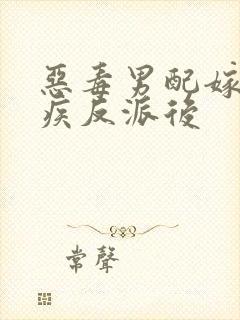 惡毒男配嫁
疾反派後
常聲